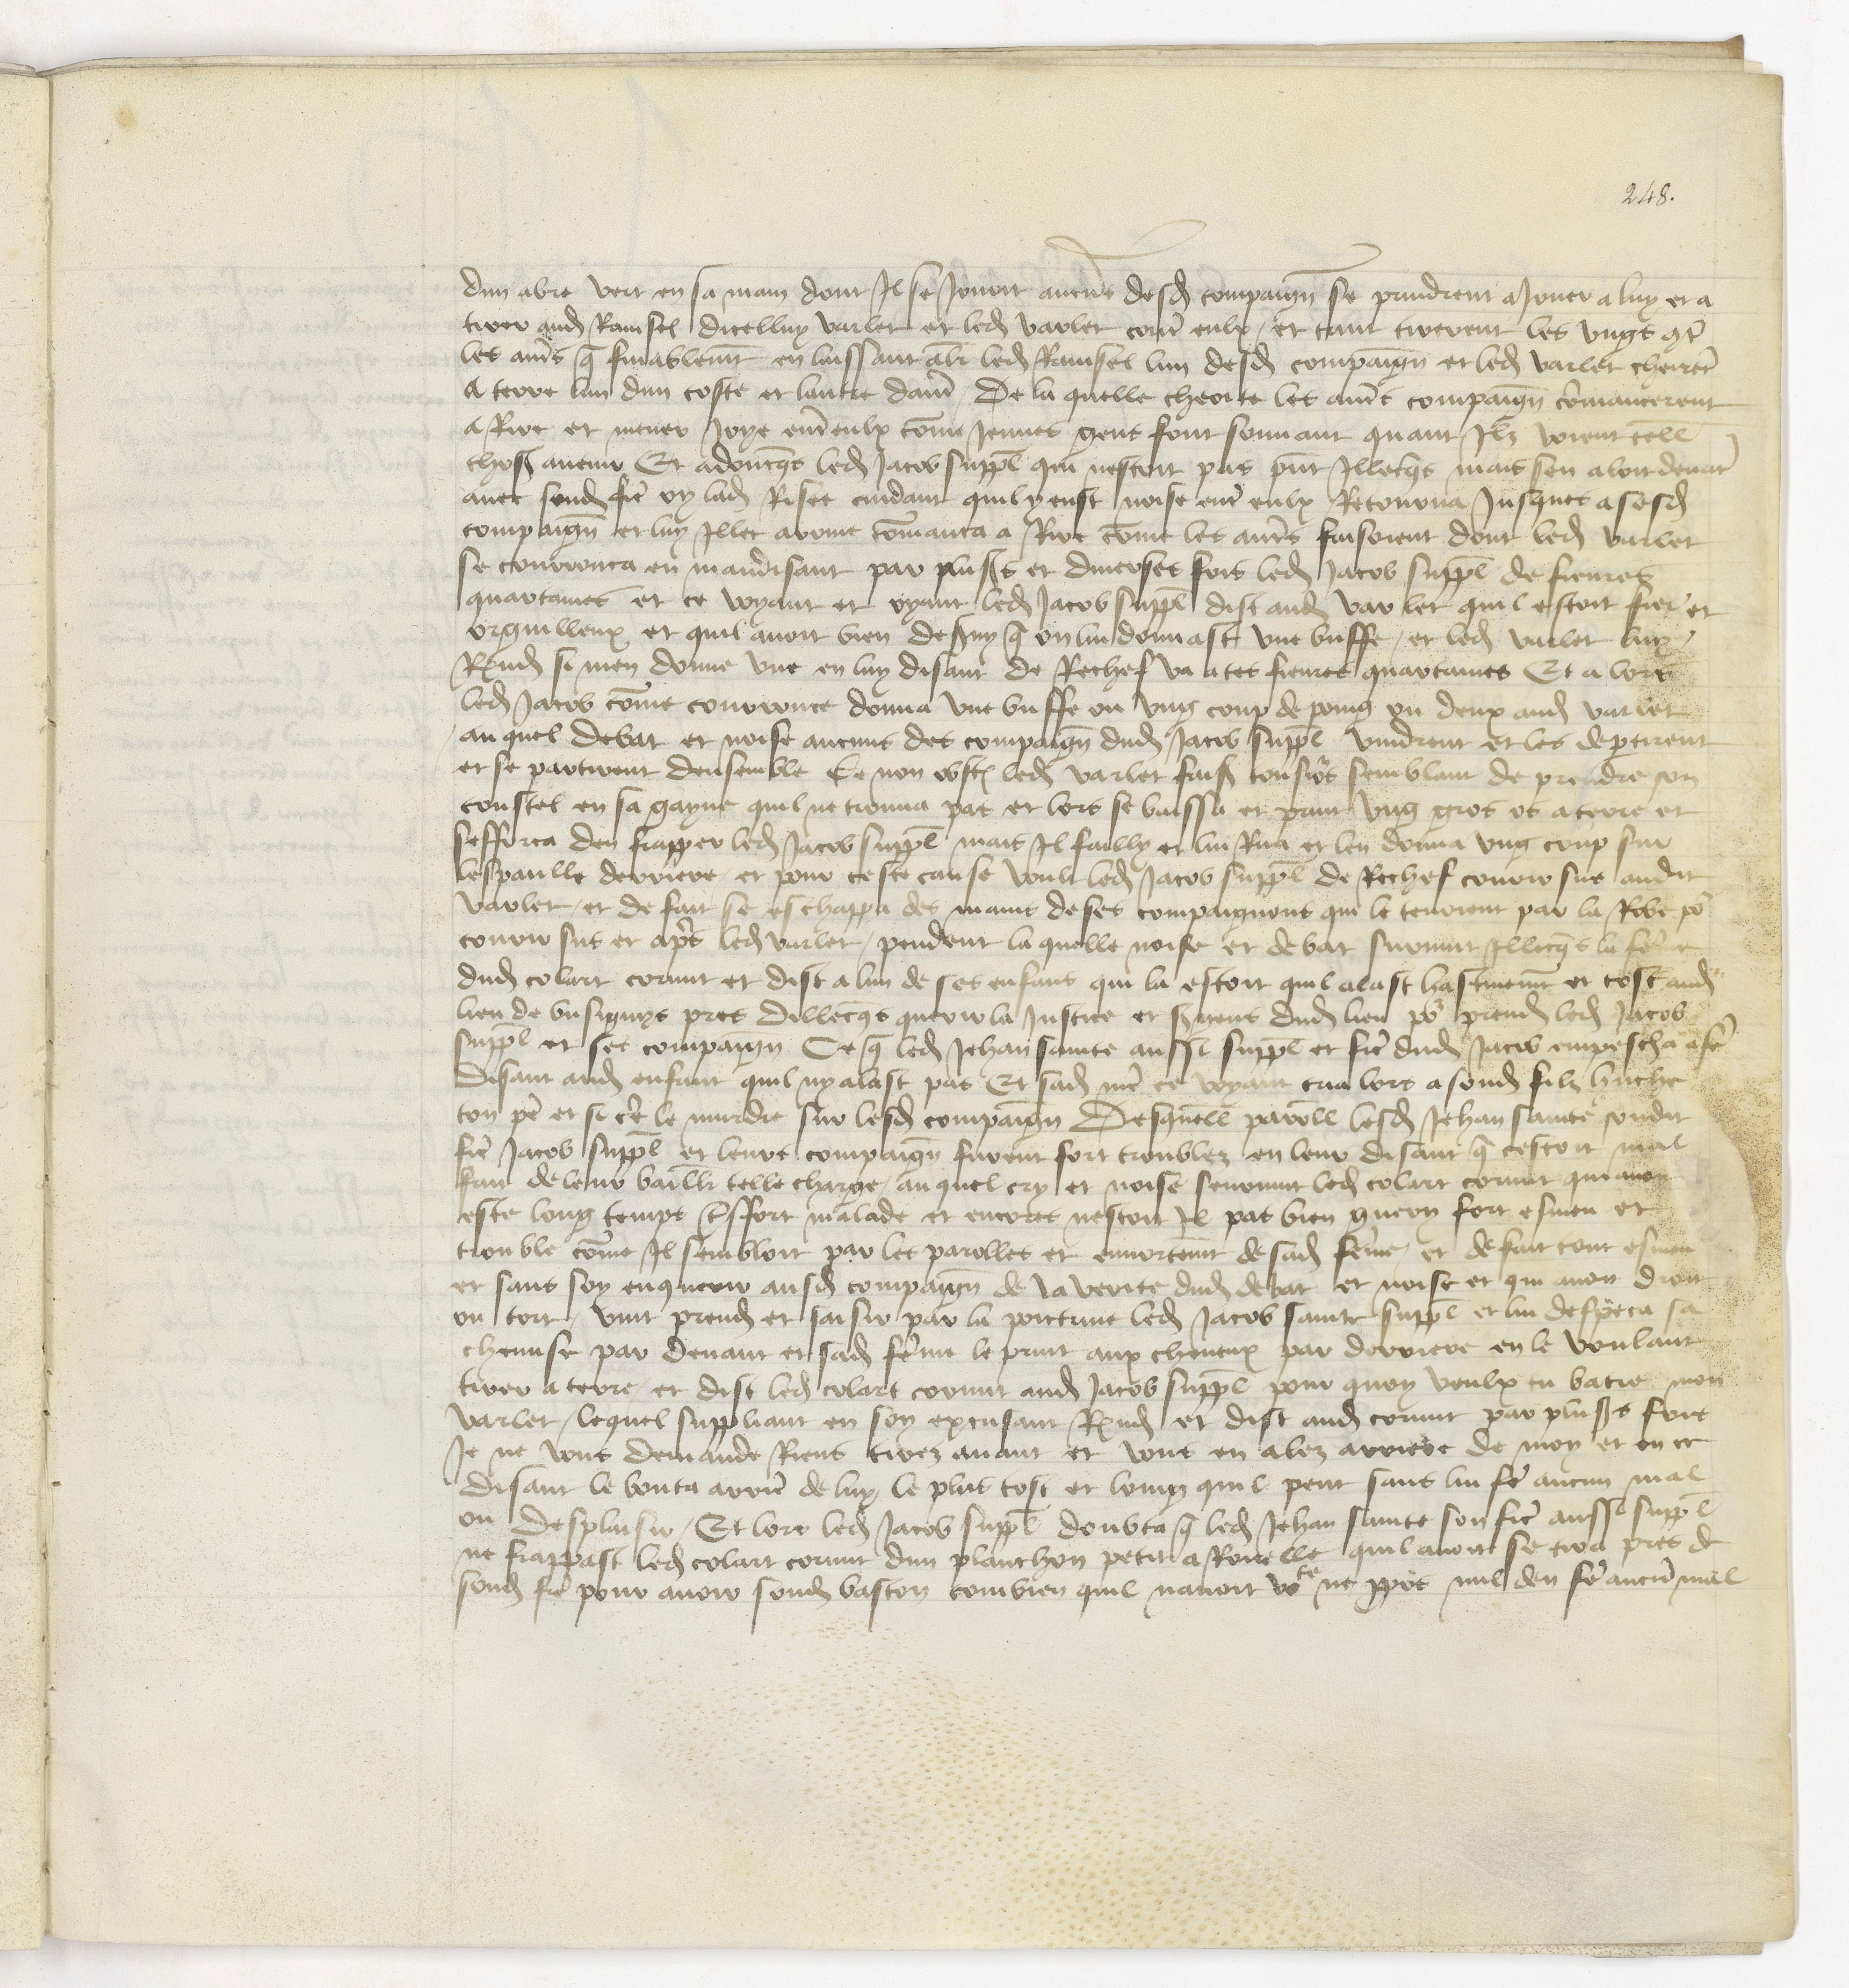 248.
dun abre vert en sa main dont Il se Jouoit aucuns desd compaign se prindrent a Jouer a luy et a
tirer aud Rainsel dicelluy varlet et led varlet contre eulx / et tant tirerent les ungs contre
les autres q finablement en laissant aler led Rainsel lun desd compaign et led varlet cheirent
A terre lun dun coste et lautre dautre / De la quelle cheoite les autres compaign commancerent
A Rire et mener Joye entre eulx comme Jeunes gens font souuant quant Ilz voient tell
choses auenir Et adoncqs led Jacob suppl qui nestoit pas pnt Illecqs mais sen aloit deuant
auec sond frere oy lad Risee cuidant quil y eust noise entre eulx Retourna Jusques a sesd
compaign et luy Illec arriue commanca a Rire comme les autres faisoient dont led varlet
se courrouca en maudisant par pluss et diuerses fois led Jacob suppl de fieures
quartaines et ce voyant et oyant led Jacob suppl dist aud varlet quil estoit fier et
orguilleux et quil auoit bien desserui q on lui donnast une buffe / et led varlet luy
Rend si men donne une en luy disant de Rechef va a tes fieures quartaines Et a lors
led Jacob comme courrouce donna une buffe ou ung coup de poing ou deux aud varlet
au quel debat et noise aucuns des compaign dud Jacob suppl vindrent et les deptirent
et se partirent densemble Ce non obst led varlet fais tousiours semblant de prendre son
coustel en sa gayne quil ne trouua pas et lors se baissa et print ung gros os a terre et
sefforca den frapper led Jacob suppl mais Il failly et lui Rua et len donna ung coup sur
lespaulle derriere / et pour ceste cause voult led Jacob suppl de Rechef courir sus audit
varlet / et de fait se eschappa des mains de ses compaignons qui le tenoient par la Robe po
courir sus et apres led varlet / pendent la quelle noise et debat suruint Illecqs la femme
dud colart cornut et dist a lun de ses enfans qui la estoit quil alast hastiuement et tost aud
lieu de busignys pres dillecqs querir la Justice et sergens dud lieu po prend led Jacob
suppl et ses compaign Ce q led Jehan sainte aussi suppl et frere dud Jacob empescha a fe
disant aud enfant quil ny alast pas Et sad mere ce voyant cria lors a sond filz huche
ton pere et si crie le murdre sur lesd compaign Desquell paroll lesd Jehan sainte sondit
frere Jacob suppl et leurs compaign furent fort troublez en leur disant q cestoit mal
fait de leur bailli telle charge / au quel cry et noise seuruint led colart cornut qui auoit
este long temps tresfort malade et encores nestoit Il pas bien guery fort esmeu et
trouble comme Il sembloit par les parolles et enhortement de sad femme / et de fait tout esmeu
et sans soy enquerir ausd compaign de la verite dud debat et noise et qui auoit droit
ou tort / vint prend et saisir par la poictrine led Jacob sainte suppl et lui despeca sa
chemise par deuant et sad femme le print aux cheueux par derriere en le voulant
tirer a terre / et dist led colart cornut aud Jacob suppl pour quoy veulx tu batre mon
varlet / lequel suppliant en soy excusant Rend et dist aud cornut par pluss fois
Je ne vous demande Riens tirez auant et vous en alez arriere de moy et en ce
disant le bouta arriere de luy le plus tost et loing quil peut sans lui fe aucun mal
ou desplaisir / Et lors led Jacob suppl doubta q led Jehan sainte son frere aussi suppl
ne frappast led colart cornut dun planchon petit a Rouelle quil auoit se tira pres de
sond frere pour auoir sond baston combien quil nauoit volte ne ppos nul den fe aucun mal